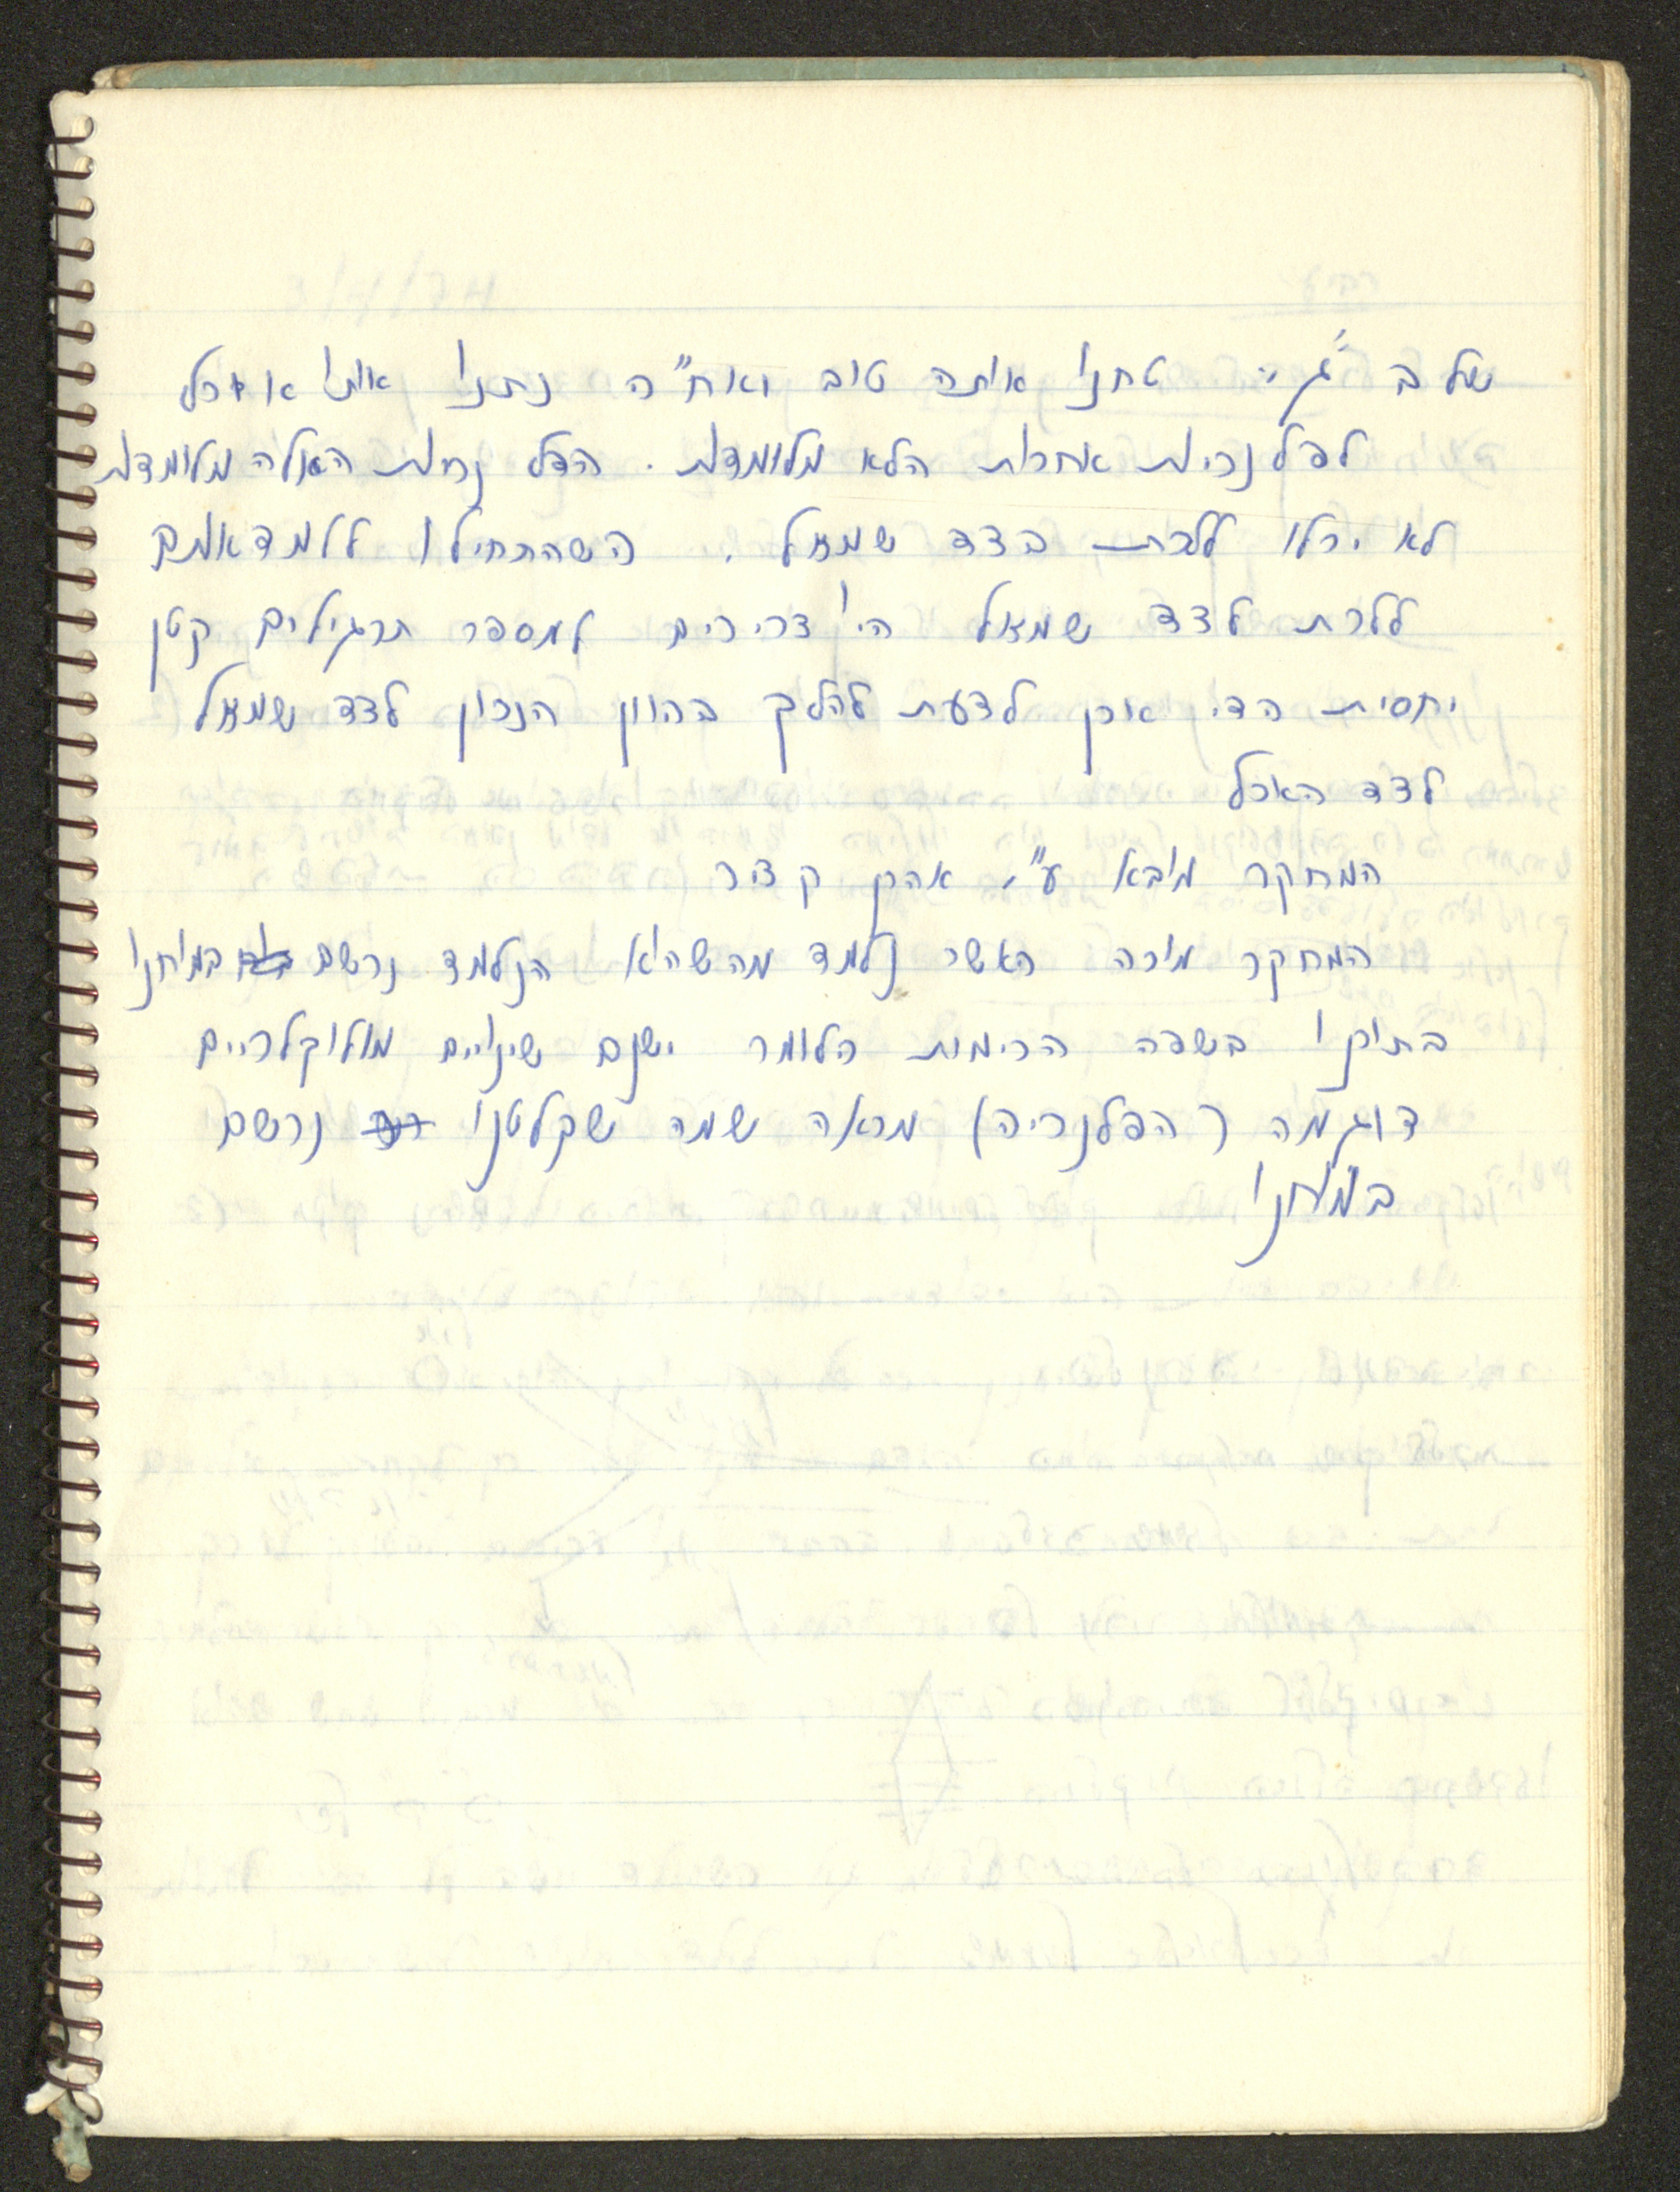 שלב "ג" טחנו אותה טוב ואח"ה נתנו אותו אוכל
לפלנריות אחרות הלא מלומדות. הפלנריות האלה מלומדות
לא יכלו ללכת בצד שמאל. כשהתחילו ללמד אותם
ללכת לצד שמאל היו צריכים למספר תרגילים קטן
יחסית כדי אותן לדעת להלך בכוון הנכון לצד שמאל
לצד האוכל
המחקר מובא ע"י אהרן קציר
המחקר מורה כאשר נלמד מה שהוא הנלמד נרשם במוחנו
בתוכנו בשפה הכימית כלומר ישנם שינויים מולוקלריים
דוגמה (הפלנריה) מראה שמה שקלטנו נרשם
במוחנו